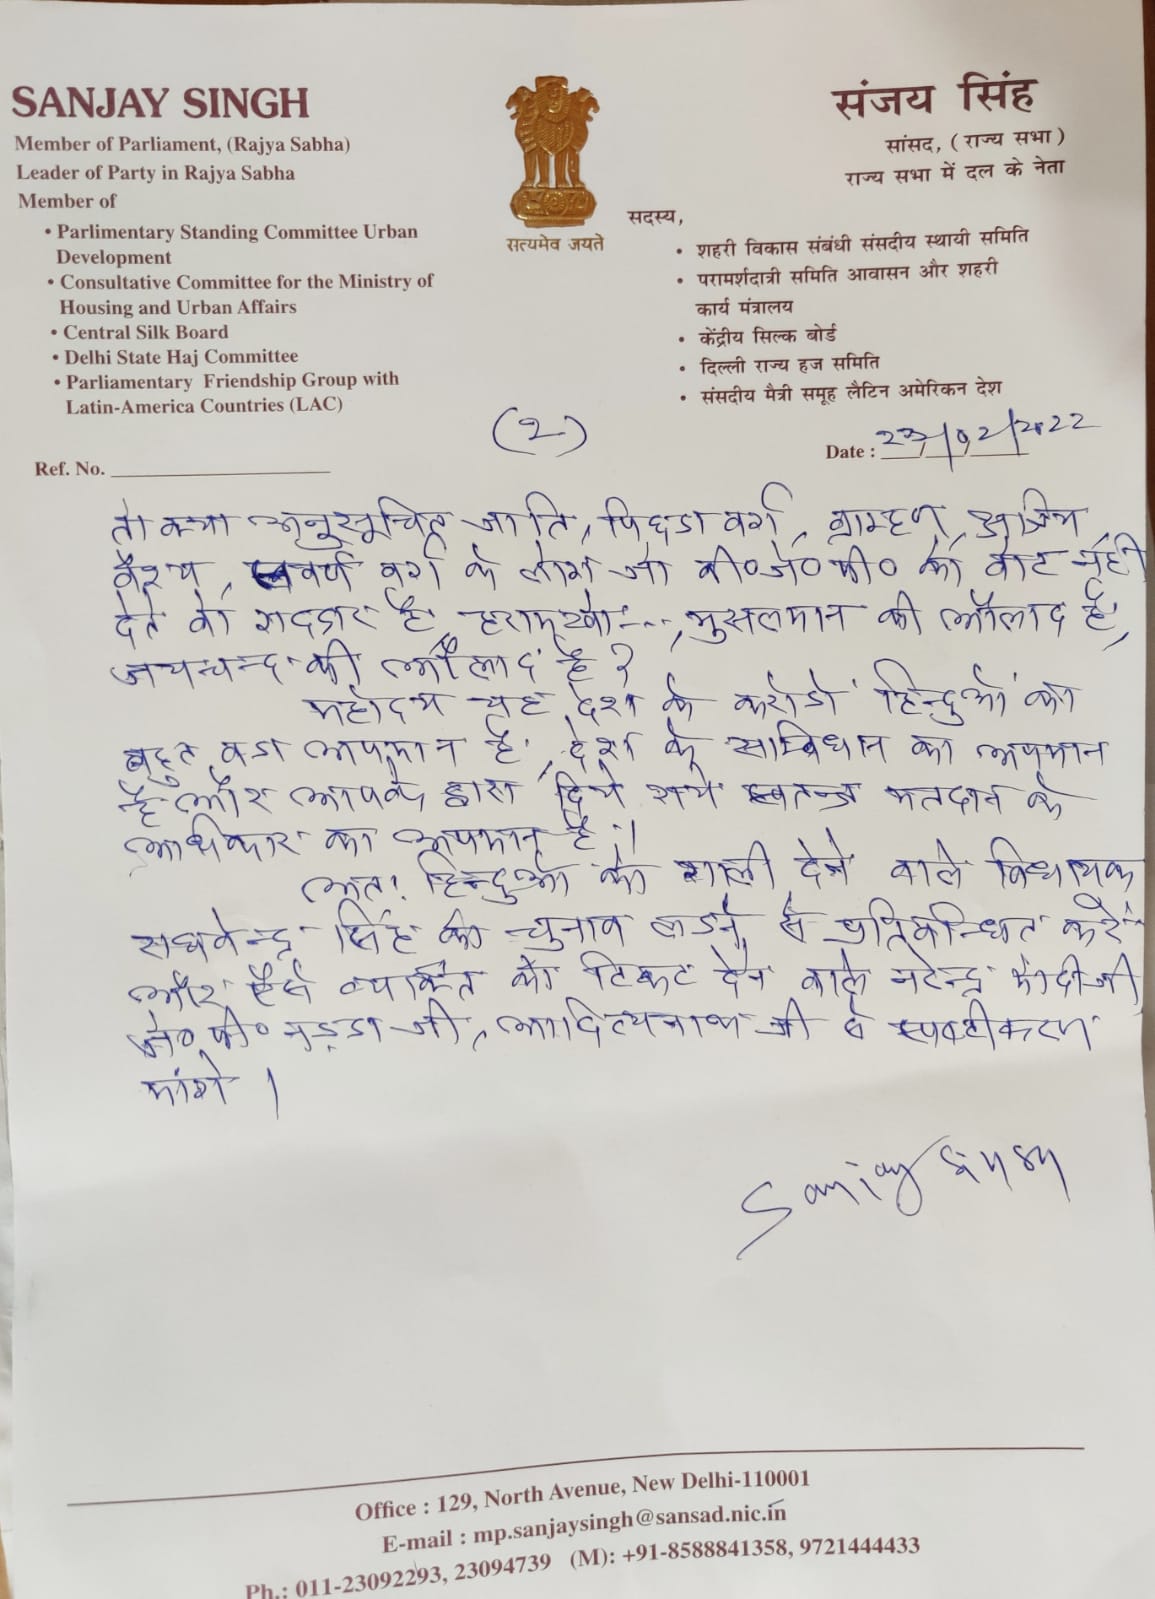 SANJAY SINGH
Member of Parliament, (Rajya Sabha)
Leader of Party in Rajya Sabha
Member of
• Parlimentary Standing Committee Urban
Development
• Consultative Committee for the Ministry of
Housing and Urban Affairs
• Central Silk Board
• Delhi State Haj Committee
• Parliamentary Friendship Group with
Latin-America Countries (LAC)
सत्यमेव जयते
संजय सिंह
सांसद, (राज्य सभा)
राज्य सभा में दल के नेता
सदस्य,
• शहरी विकास संबंधी संसदीय स्थायी समिति
• परामर्शदात्री समिति आवासन और शहरी
कार्य मंत्रालय
• केंद्रीय सिल्क बोर्ड
• दिल्ली राज्य हज समिति
• संसदीय मैत्री समूह लैटिन अमेरिकन देश
(2)
Ref. No.
Date : 23/02/2022
तो क्या अनुसूचित जाति, पिछडा वर्ग, ब्राम्हण, क्षत्रिय
वैश्य, स्वर्ण वर्ग के लोग जो बी०जे०पी० को वोट नही
देते वो गद्दार है, हरामखो---, मुसलमान की औलाद है,
जयचन्द की औलाद है?
महोदय यह देश के करोडो हिन्दुओं का
बहुत बडा अपमान है, देश के संविधान का अपमान
है और आपके द्वारा दिये गये स्वतन्त्र मतदान के
अधिकार का अपमान है।
अतः हिन्दुओं को गाली देने वाले विधायक
राघवेन्द्र सिंह को चुनाव लडने से प्रतिबन्धित करें
और ऐसे व्यक्ति को टिकट देने वाले नरेन्द्र मोदी जी
जे०पी० नड्डा जी, आदित्यनाथ जी से स्पष्टीकरण
मांगे।
Sanjay Singh
Office : 129, North Avenue, New Delhi-110001
E-mail : mp.sanjaysingh@sansad.nic.in
Ph.: 011-23092293, 23094739 (M): +91-8588841358, 9721444433